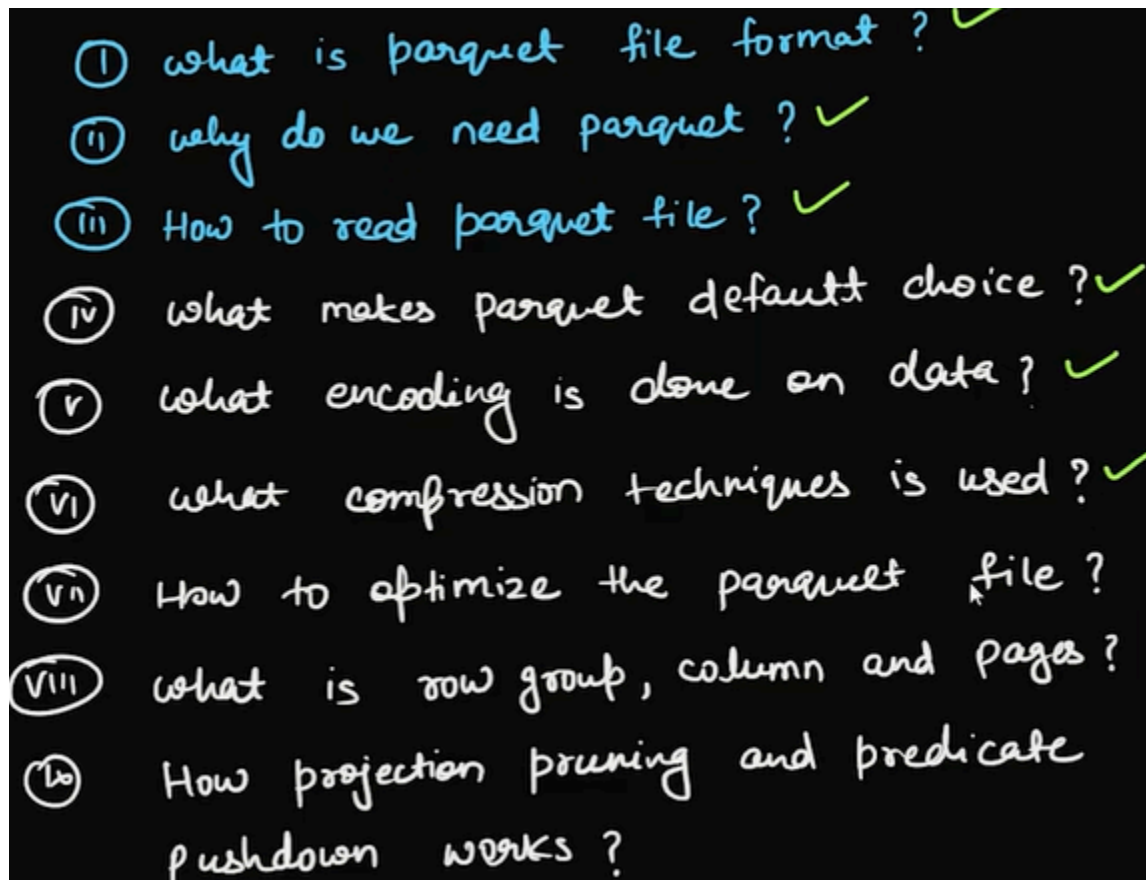 (i) what is parquet file format ? ✓
(ii) why do we need parquet ? ✓
(iii) How to read parquet file ? ✓
(iv) what makes parquet defautt choice ? ✓
(v) what encoding is done on data ? ✓
(vi) what compression techniques is used ? ✓
(vii) How to optimize the parquet file ?
(viii) what is row group, column and pages ?
How projection pruning and predicate
pushdown works ?